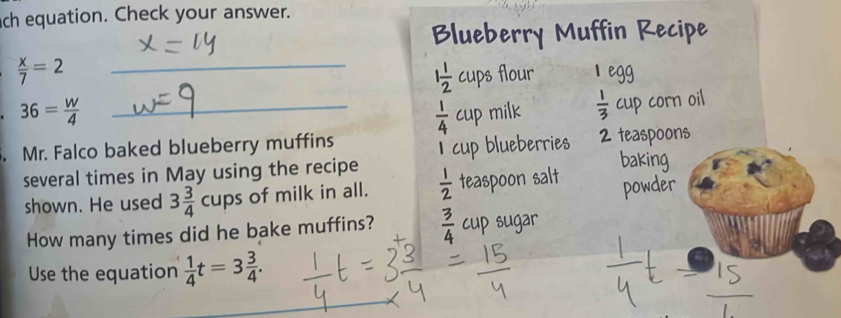 ach equation. Check your answer.
x = 14
x/7 = 2
36 = w/4
w=9
Mr. Falco baked blueberry muffins
several times in May using the recipe
shown. He used 3 3/4 cups of milk in all.
How many times did he bake muffins?
Use the equation 1/4t = 3 3/4.
Blueberry Muffin Recipe
1 1/2 cups flour
1/4 cup milk
1 cup blueberries
1/2 teaspoon salt
3/4 cup sugar
1 egg
1/3 cup corn oil
2 teaspoons
baking
powder
1/4 t = 3 + 3 / x 4 = 15/4
1/4 t = 15/